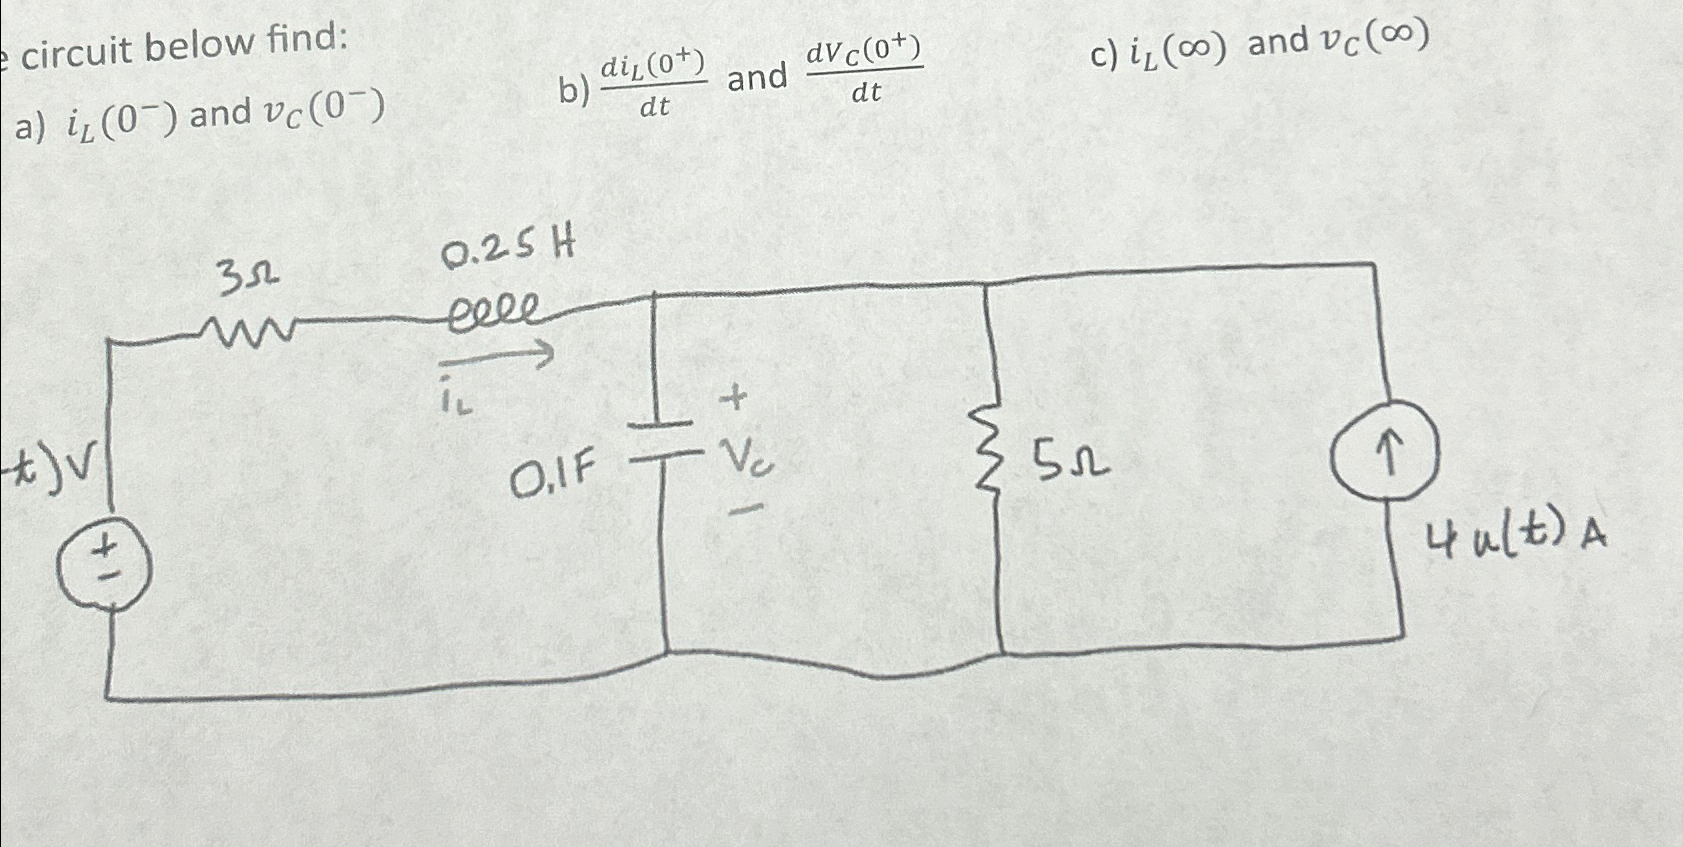 circuit below find:
a) i_L(0⁻) and v_C(0⁻)
b) di_L(0⁺)/dt and dV_C(0⁺)/dt
c) i_L(∞) and v_C(∞)
3Ω
0.25 H
i_L
-t)V
+
-
0.1F
+
V_c
-
5Ω
4 u(t) A